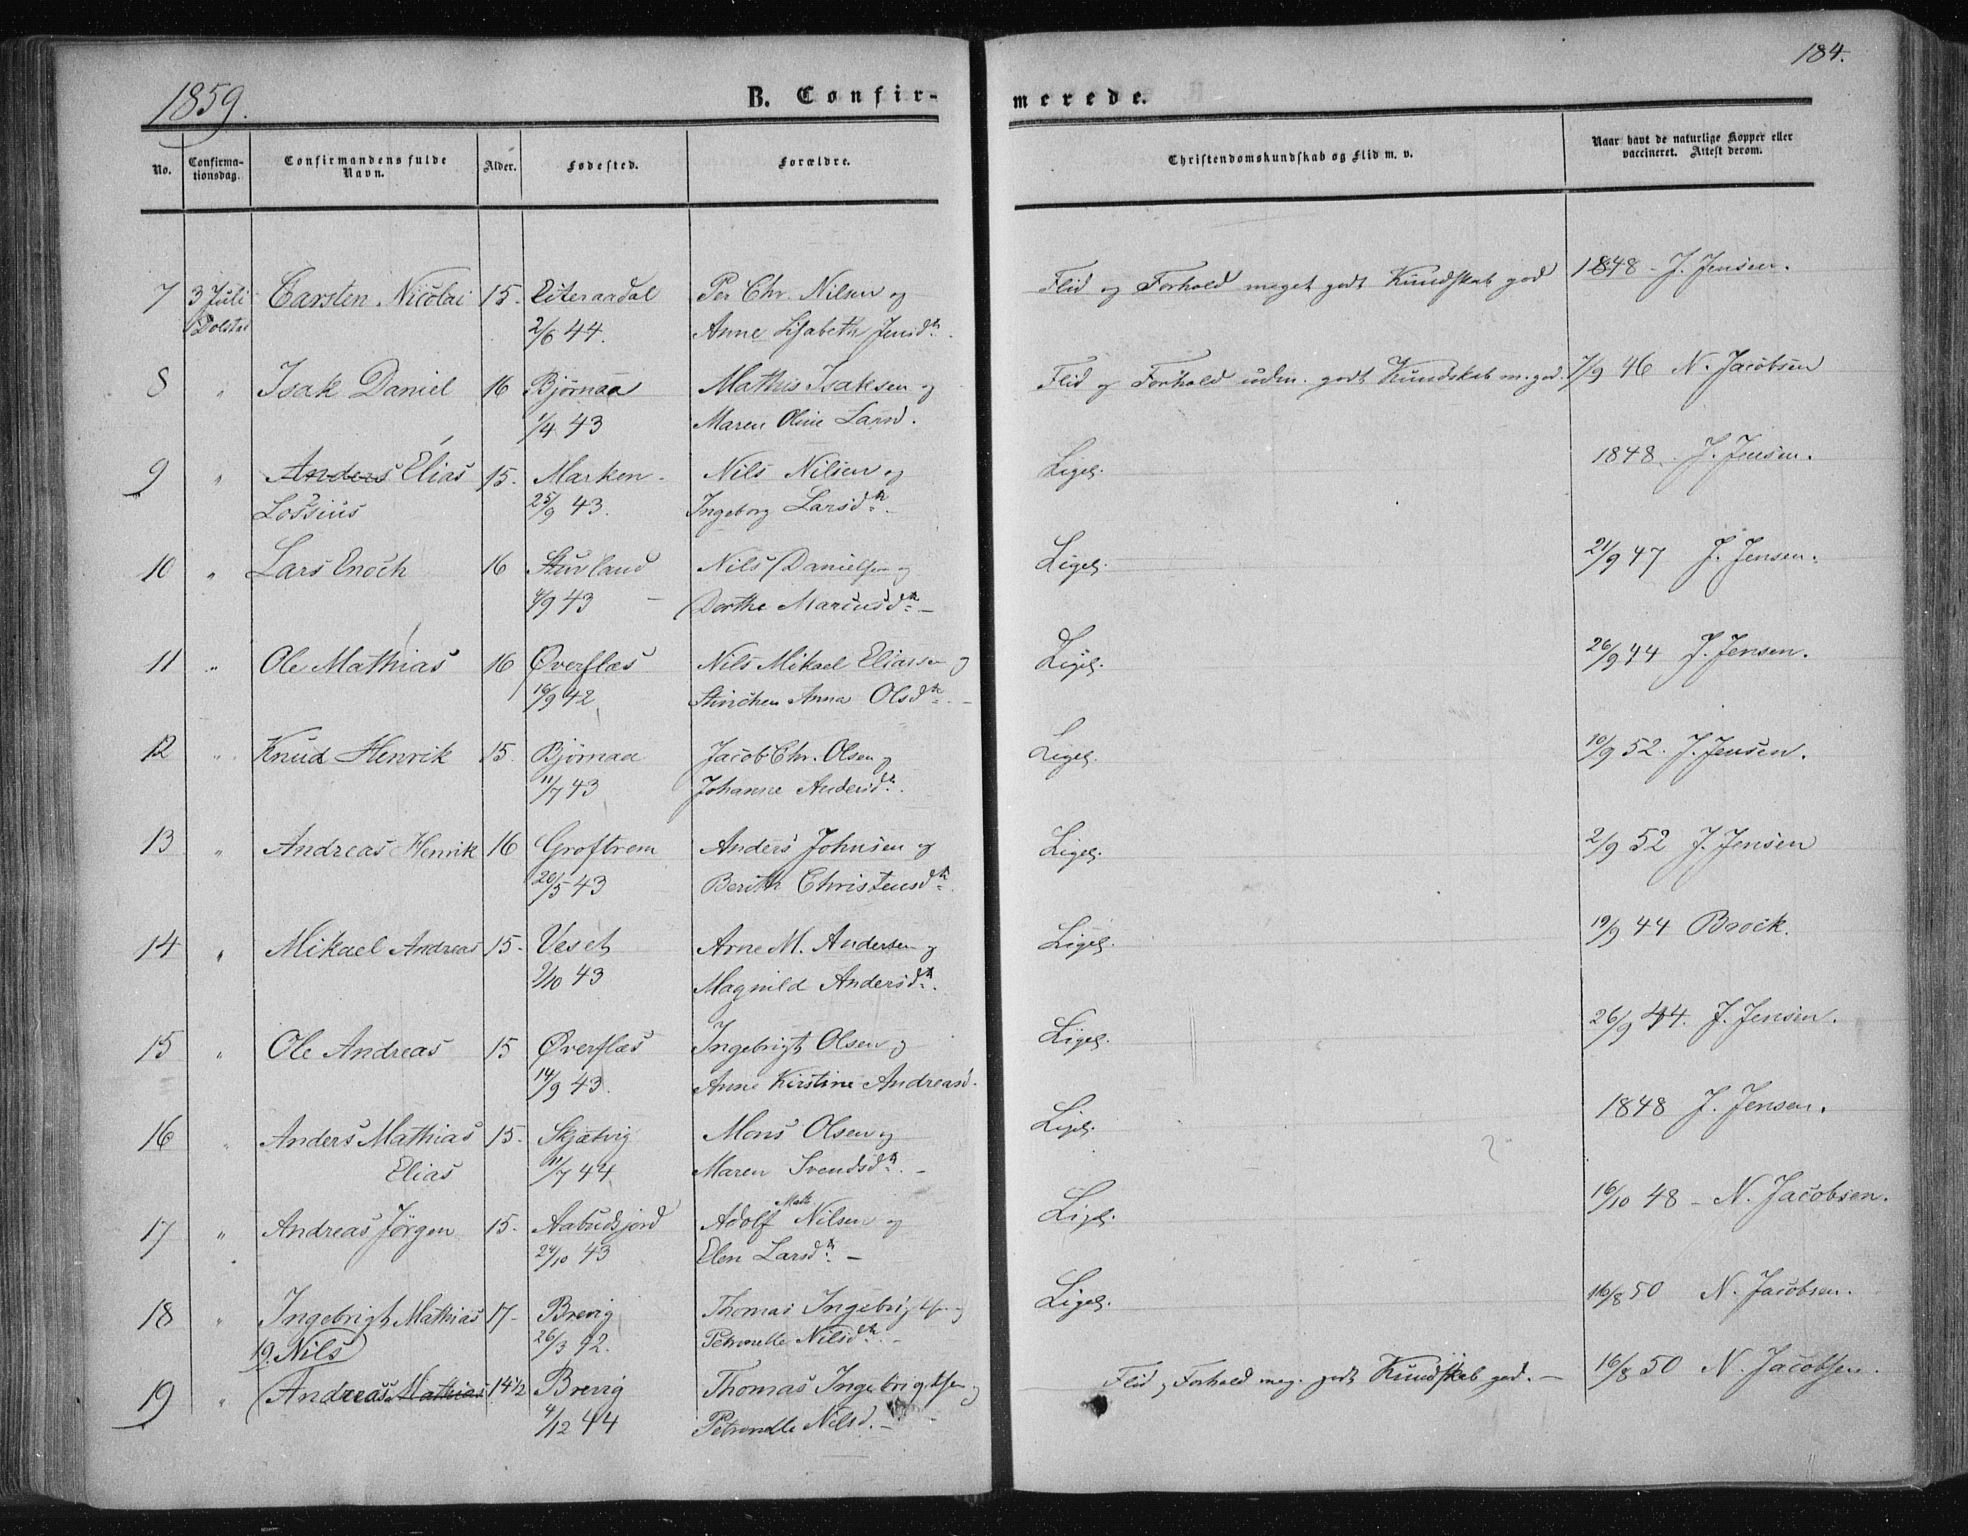 184.
1859.
B. Confir-
merede.
No.
Confirma-
tionsdag.
Confirmandens fulde
Navn.
Alder.
Fødested.
Forældre.
Christendomskundskab og Flid m. v.
Naar havt de naturlige Kopper eller
vaccineret. Attest derom.
7 3 Juli Carsten Nicolai 15. Per Chr. Nilsen og Flid og Forhold meget godt Kundskab god 1848 - J. Jensen.
Dolstad 2/6 44. Anne Lisabeth Jensd.
8 " Isak Daniel 16 Bjørnaa Mathis Isaksen og Flid og Forhold udm. godt Kundskab m. god. 7/9 46 N. Jacobsen
1/4 43 Maren Oline Larsd.
9 " Anders Elias 15. Marken Nils Nilsen og Ligel. 1848. J. Jensen.
Lossius 25/9 43. Ingeborg Larsd.
10 " Lars Enoch 16 Nils Danielsen og Ligel. 21/9 47 J. Jensen.
4/9 43 Dorthe Mariusd. -
11 " Ole Mathias 16 Øverflæs Nils Mikael Eliassen og Ligel. 26/9 44 J. Jensen.
16/9 42 Stinchen Anna Olsd. -
12 " Knud Henrik 15. Bjørnaa Jacob Chr. Olsen og Ligel. 10/9 52. J. Jensen.
11/7 43 Johanne Andersd.
13 " Andreas Henrik 16 Groftrem Anders Johnsen og Ligel. 2/9 52 J. Jensen
20/5 43 Berith Christensd.
14 " Mikael Andreas 15. Veset Arne M. Andersen og Ligel. 19/9 44 Brock.
2/10 43 Magnild Andersd.
15 " Ole Andreas 15 Øverflæs Ingebrigt Olsen og Ligel. 26/9 44. J. Jensen.
14/9 43. Anne Kirstine Andreasd.
16 " Anders Mathias 15. Skjætvig Mons Olsen og Ligel. 1848 J. Jensen.
Elias 11/7 44 Maren Svendsd. -
Math
17 " Andreas Jørgen 15. Aabudsjord Adolf Nilsen og Ligel. 16/10 48 - N. Jacobsen.
24/10 43 Elen Larsd. -
18 " Ingebrigt Mathias 17. Brevig Thomas Ingebrigtsen og Ligel. 16/8 50 N. Jacobsen.
19. Nils 26/3 42. Petronelle Nilsd. -
19 " Andreas Mathias 14 1/2 Brevig Thomas Ingebrigtsen og Flid og Forhold meg. godt Kundskab god. - 16/8 50 N. Jacobsen.
4/12 44 Petronelle Nilsd. -